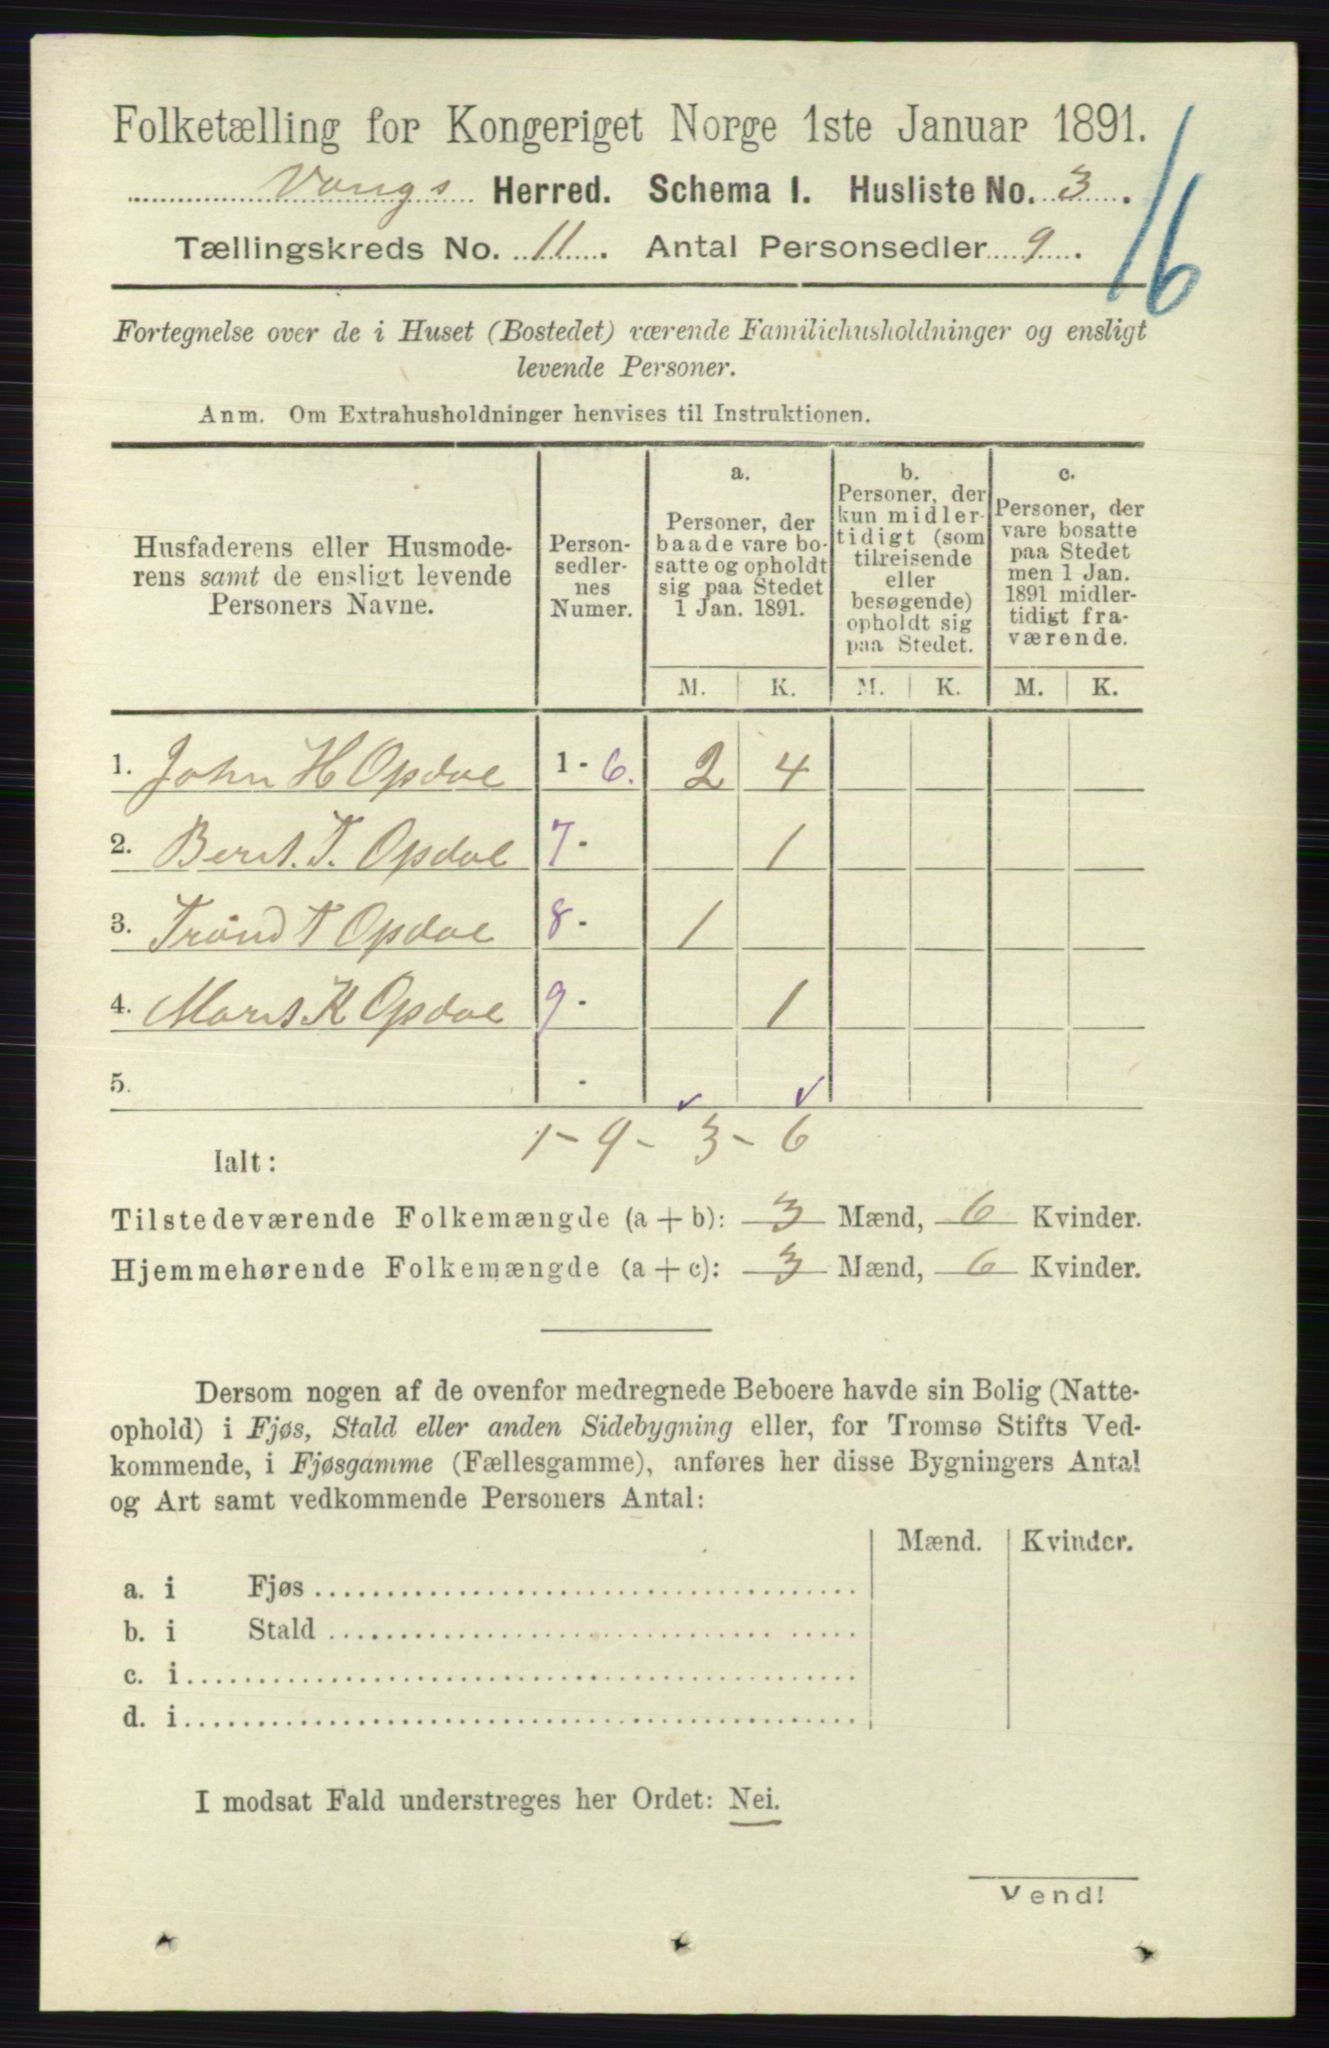 Folketælling for Kongeriget Norge 1ste Januar 1891.
Vangs Herred. Schema I. Husliste No. 3.
16
Tællingskreds No. 11. Antal Personsedler 9.
Fortegnelse over de i Huset (Bostedet) værende Familiehusholdninger og ensligt
levende Personer.
Anm. Om Extrahusholdninger henvises til Instruktionen.
Husfaderens eller Husmode-
rens samt de ensligt levende
Personers Navne.
Person-
sedler-
nes
Numer.
a.
Personer, der
baade vare bo-
satte og opholdt
sig paa Stedet
1 Jan. 1891.
b.
Personer, der
kun midler-
tidigt (som
tilreisende
eller
besøgende)
opholdt sig
paa Stedet.
c.
Personer, der
vare bosatte
paa Stedet
men 1 Jan.
1891 midler-
tidigt fra-
værende.
M. K. M. K. M. K.
1. John H Opdal 1 - 6. 2 4
2. Berit. T. Opdal 7 - 1
3. Trond T Opdal 8 - 1
4. Marit K Opdal 9 - 1
5. -
1 - 9 - 3 - 6
Ialt:
Tilstedeværende Folkemængde (a + b): 3 Mænd, 6 Kvinder.
Hjemmehørende Folkemængde (a + c): 3 Mænd, 6 Kvinder.
Dersom nogen af de ovenfor medregnede Beboere havde sin Bolig (Natte-
ophold) i Fjøs, Stald eller anden Sidebygning eller, for Tromsø Stifts Ved-
kommende, i Fjøsgamme (Fællesgamme), anføres her disse Bygningers Antal
og Art samt vedkommende Personers Antal:
Mænd. Kvinder.
a. i Fjøs
b. i Stald
c. i
d. i
I modsat Fald understreges her Ordet: Nei.
Vend!